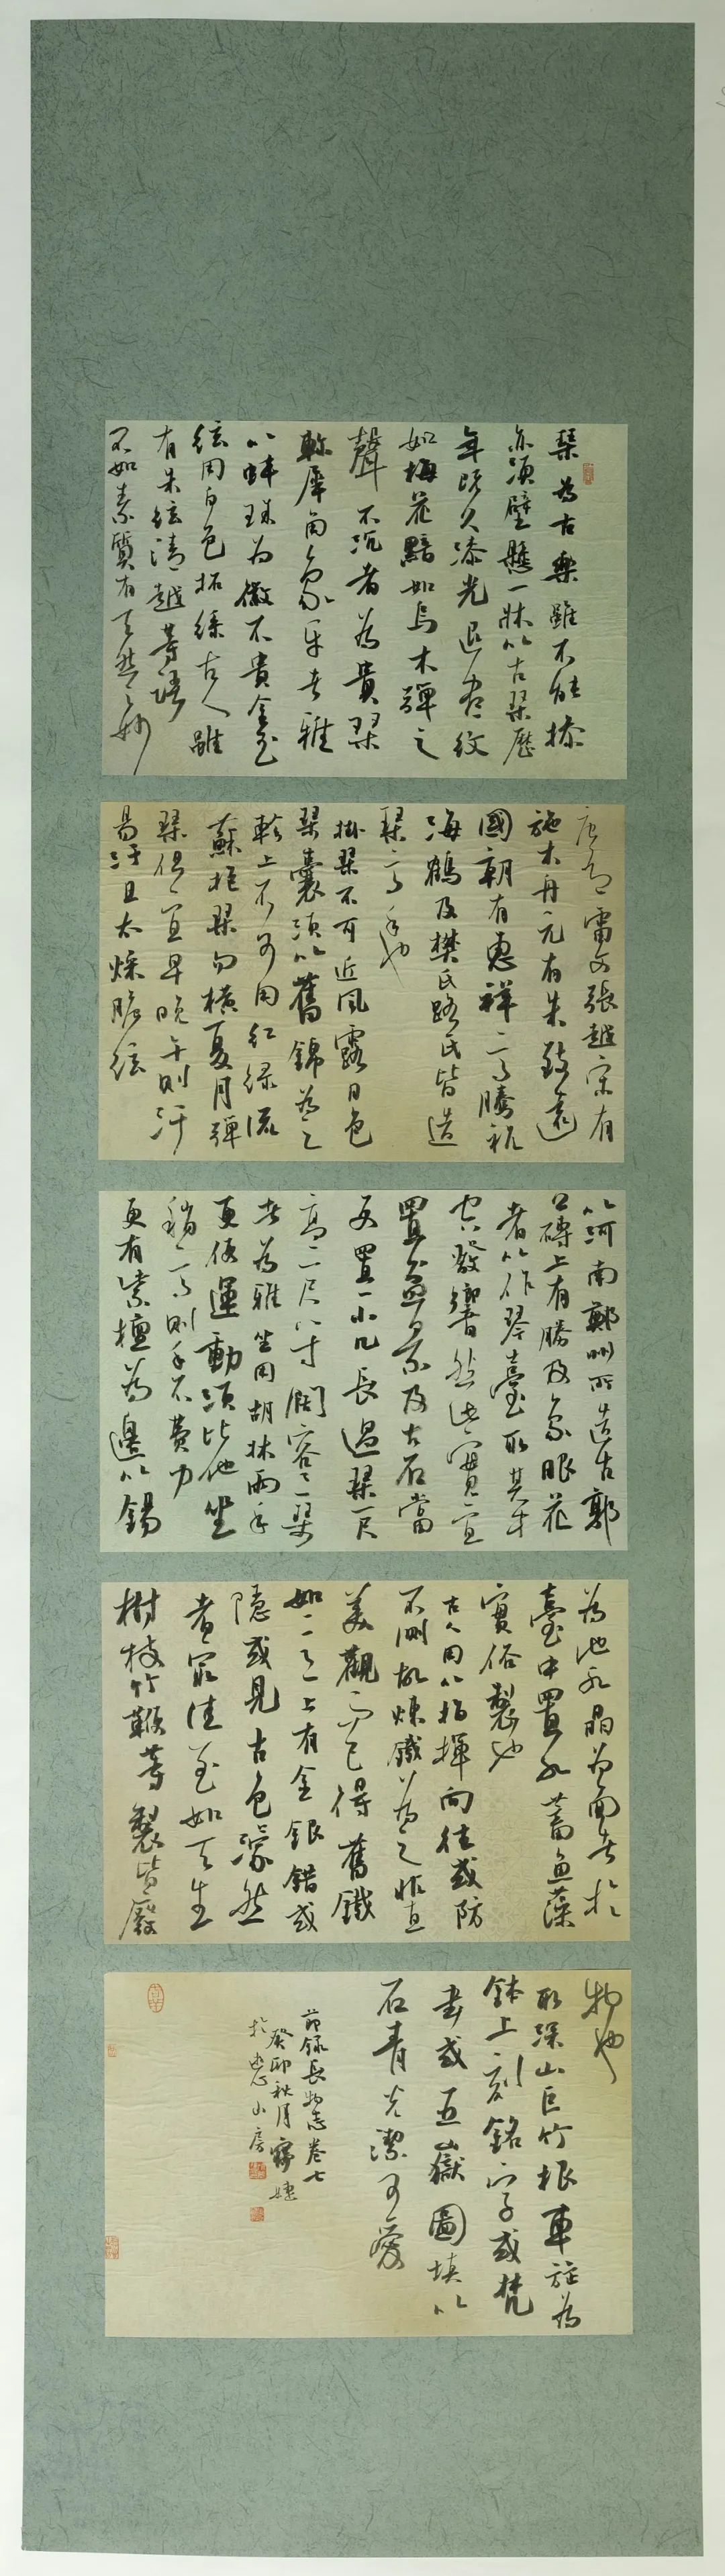 琴為古樂雖不能操
亦須壁懸一牀以古琴歷
年既久漆光退盡紋
如梅花黯如烏木彈之
聲不沉者為貴琴
軫犀角象牙者雅
以蚌珠為徽不貴金玉
絃用白色柘絲古人雖
有朱絃清越等語
不如素質有天然之妙
唐有雷文張越宋有
施木舟元有朱致遠
國朝有惠祥高騰祝
海鶴及樊氏路氏皆造
琴高手也
掛琴不可近風露日色
琴囊須以舊錦為之
軫上不可用紅綠流
蘇抱琴勿橫夏月彈
琴但宜早晚午則汗
易汙且太燥脆絃
以河南鄭州所造古郭
公磚上有勝及象眼花
者以作琴臺取其中
空發響然此實宜
置盆景及古石當
更置一小几長過琴一尺
高二尺八寸闊容三琴
者為雅坐用胡牀兩手
更便運動須比他坐
稍高則手不費力
更有紫檀為邊以錫
為池水晶為面者於
臺中置水蓄魚藻
實俗製也
古人用以指揮向往或防
不測故煉鐵為之非直
美觀而已得舊鐵
如意上有金銀錯或
隱或見古色濛然
者最佳至如天生
樹枝竹鞭等製皆廢
物也
取深山巨竹根車旋為
鉢上刻銘字或梵
書或五嶽圖填以
石青光潔可愛
節錄長物志卷七
癸卯秋月
於山房